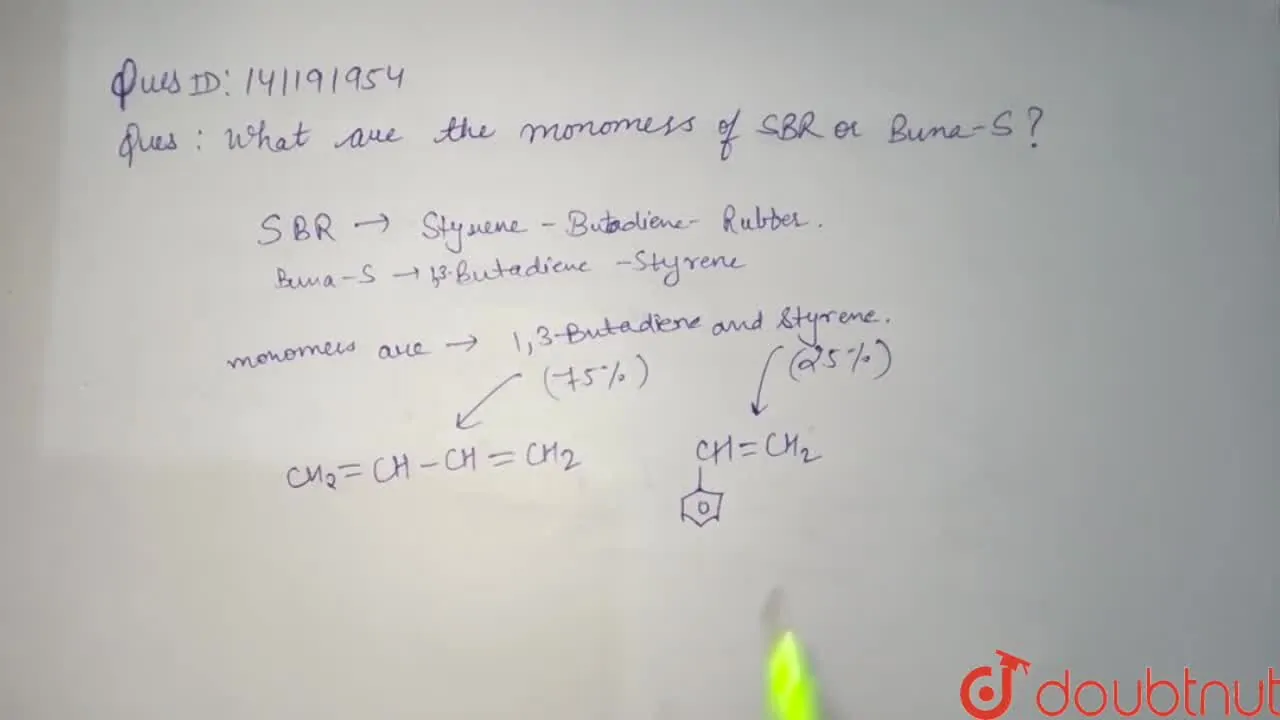 Ques ID: 141191954
Ques : What are the monomess of SBR or Buna-S?
SBR → Styrene - Butadiene- Rubber.
Buna-S → 1,3-Butadiene -Styrene
monomers are → 1,3-Butadiene and Styrene.
(75%) (25%)
CH2=CH-CH=CH2 CH=CH2
doubtnut